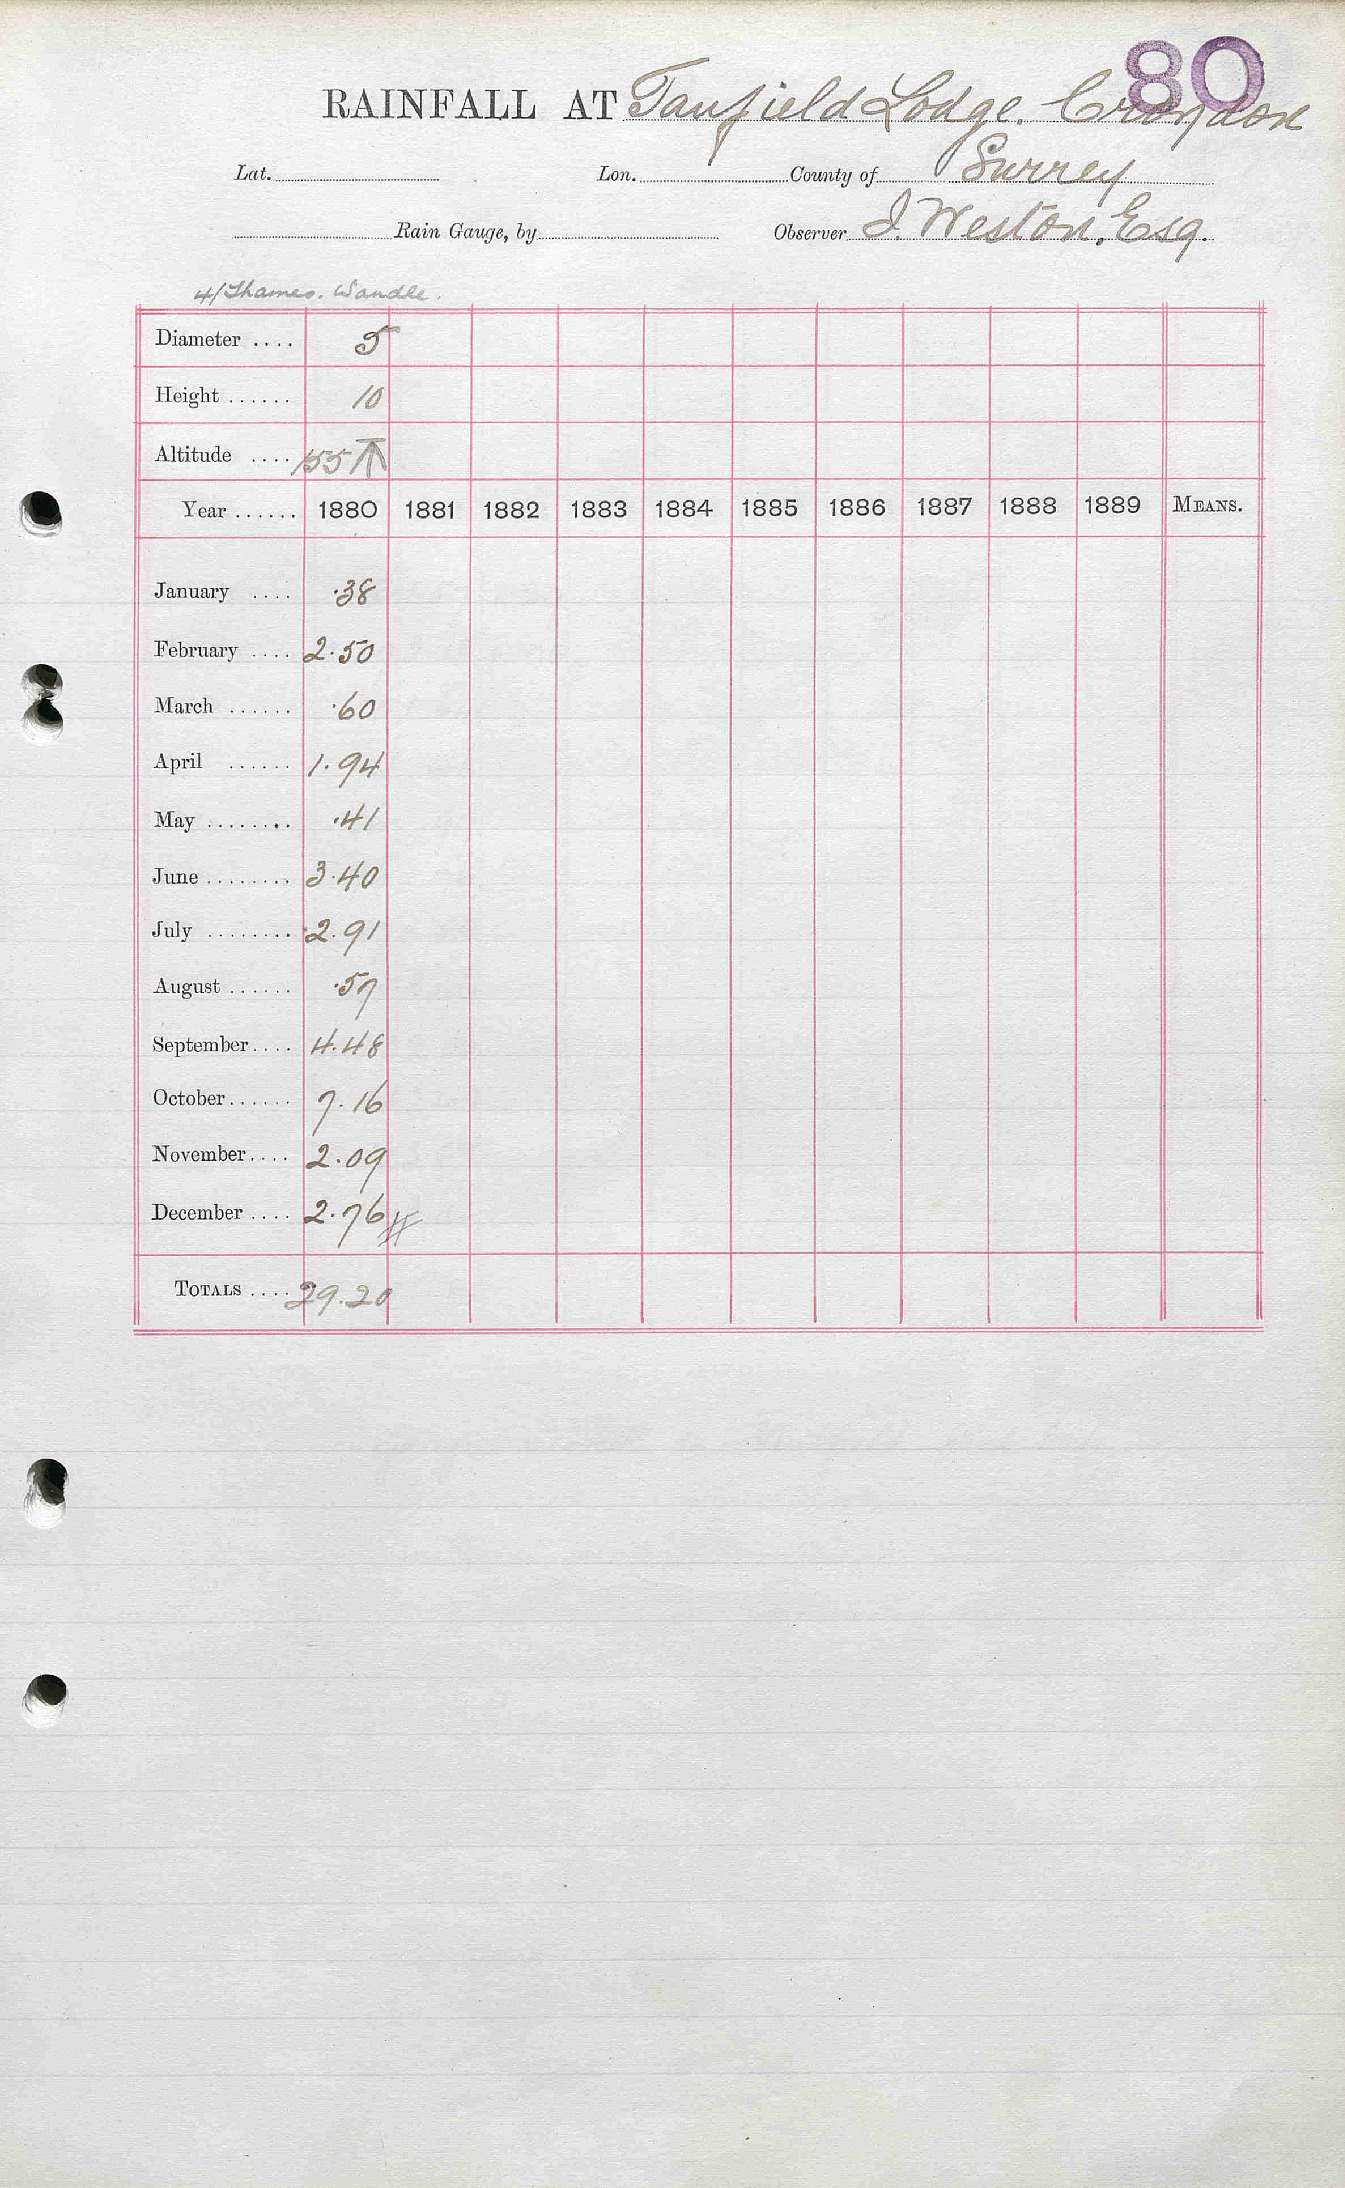 80
RAINFALL AT Tanfield Lodge. Croydon
Lat. Lon. County of Surrey
Rain Gauge, by Observer J. Weston, Esq.
4/Thames. Wandle.
Diameter .... 5
Height ...... 10
Altitude .... 155 T
Year ...... 1880 1881 1882 1883 1884 1885 1886 1887 1888 1889 MEANS.
January .... .38
February .... 2.50
March ...... .60
April ...... 1.94
May ........ .41
June ........ 3.40
July ........ 2.91
August ...... .57
September .... 4.48
October ...... 7.16
November .... 2.09
December .... 2.76 #
TOTALS .... 29.20